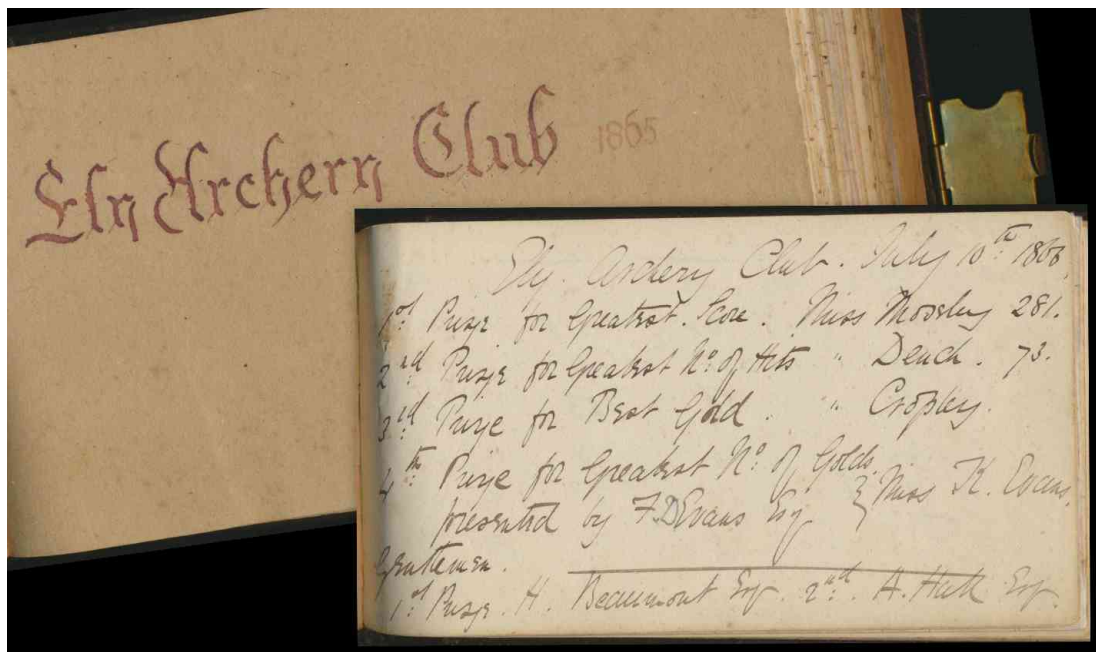 Ely Archery Club 1865
Ely. Archery Club. July 10th: 1866.
1st: Prize for Greatest. Score. Miss Moseley 281.
2nd: Prize for Greatest No: of Hits " Dench. 73.
3rd: Prize for Best Gold. " Cropley.
4th: Prize for Greatest No: of Golds.
presented by F.D Evans Esq } Miss K. Evans.
Gentlemen.
1st: Prize. H. Beaumont Esq. 2nd: A. Hall Esq.